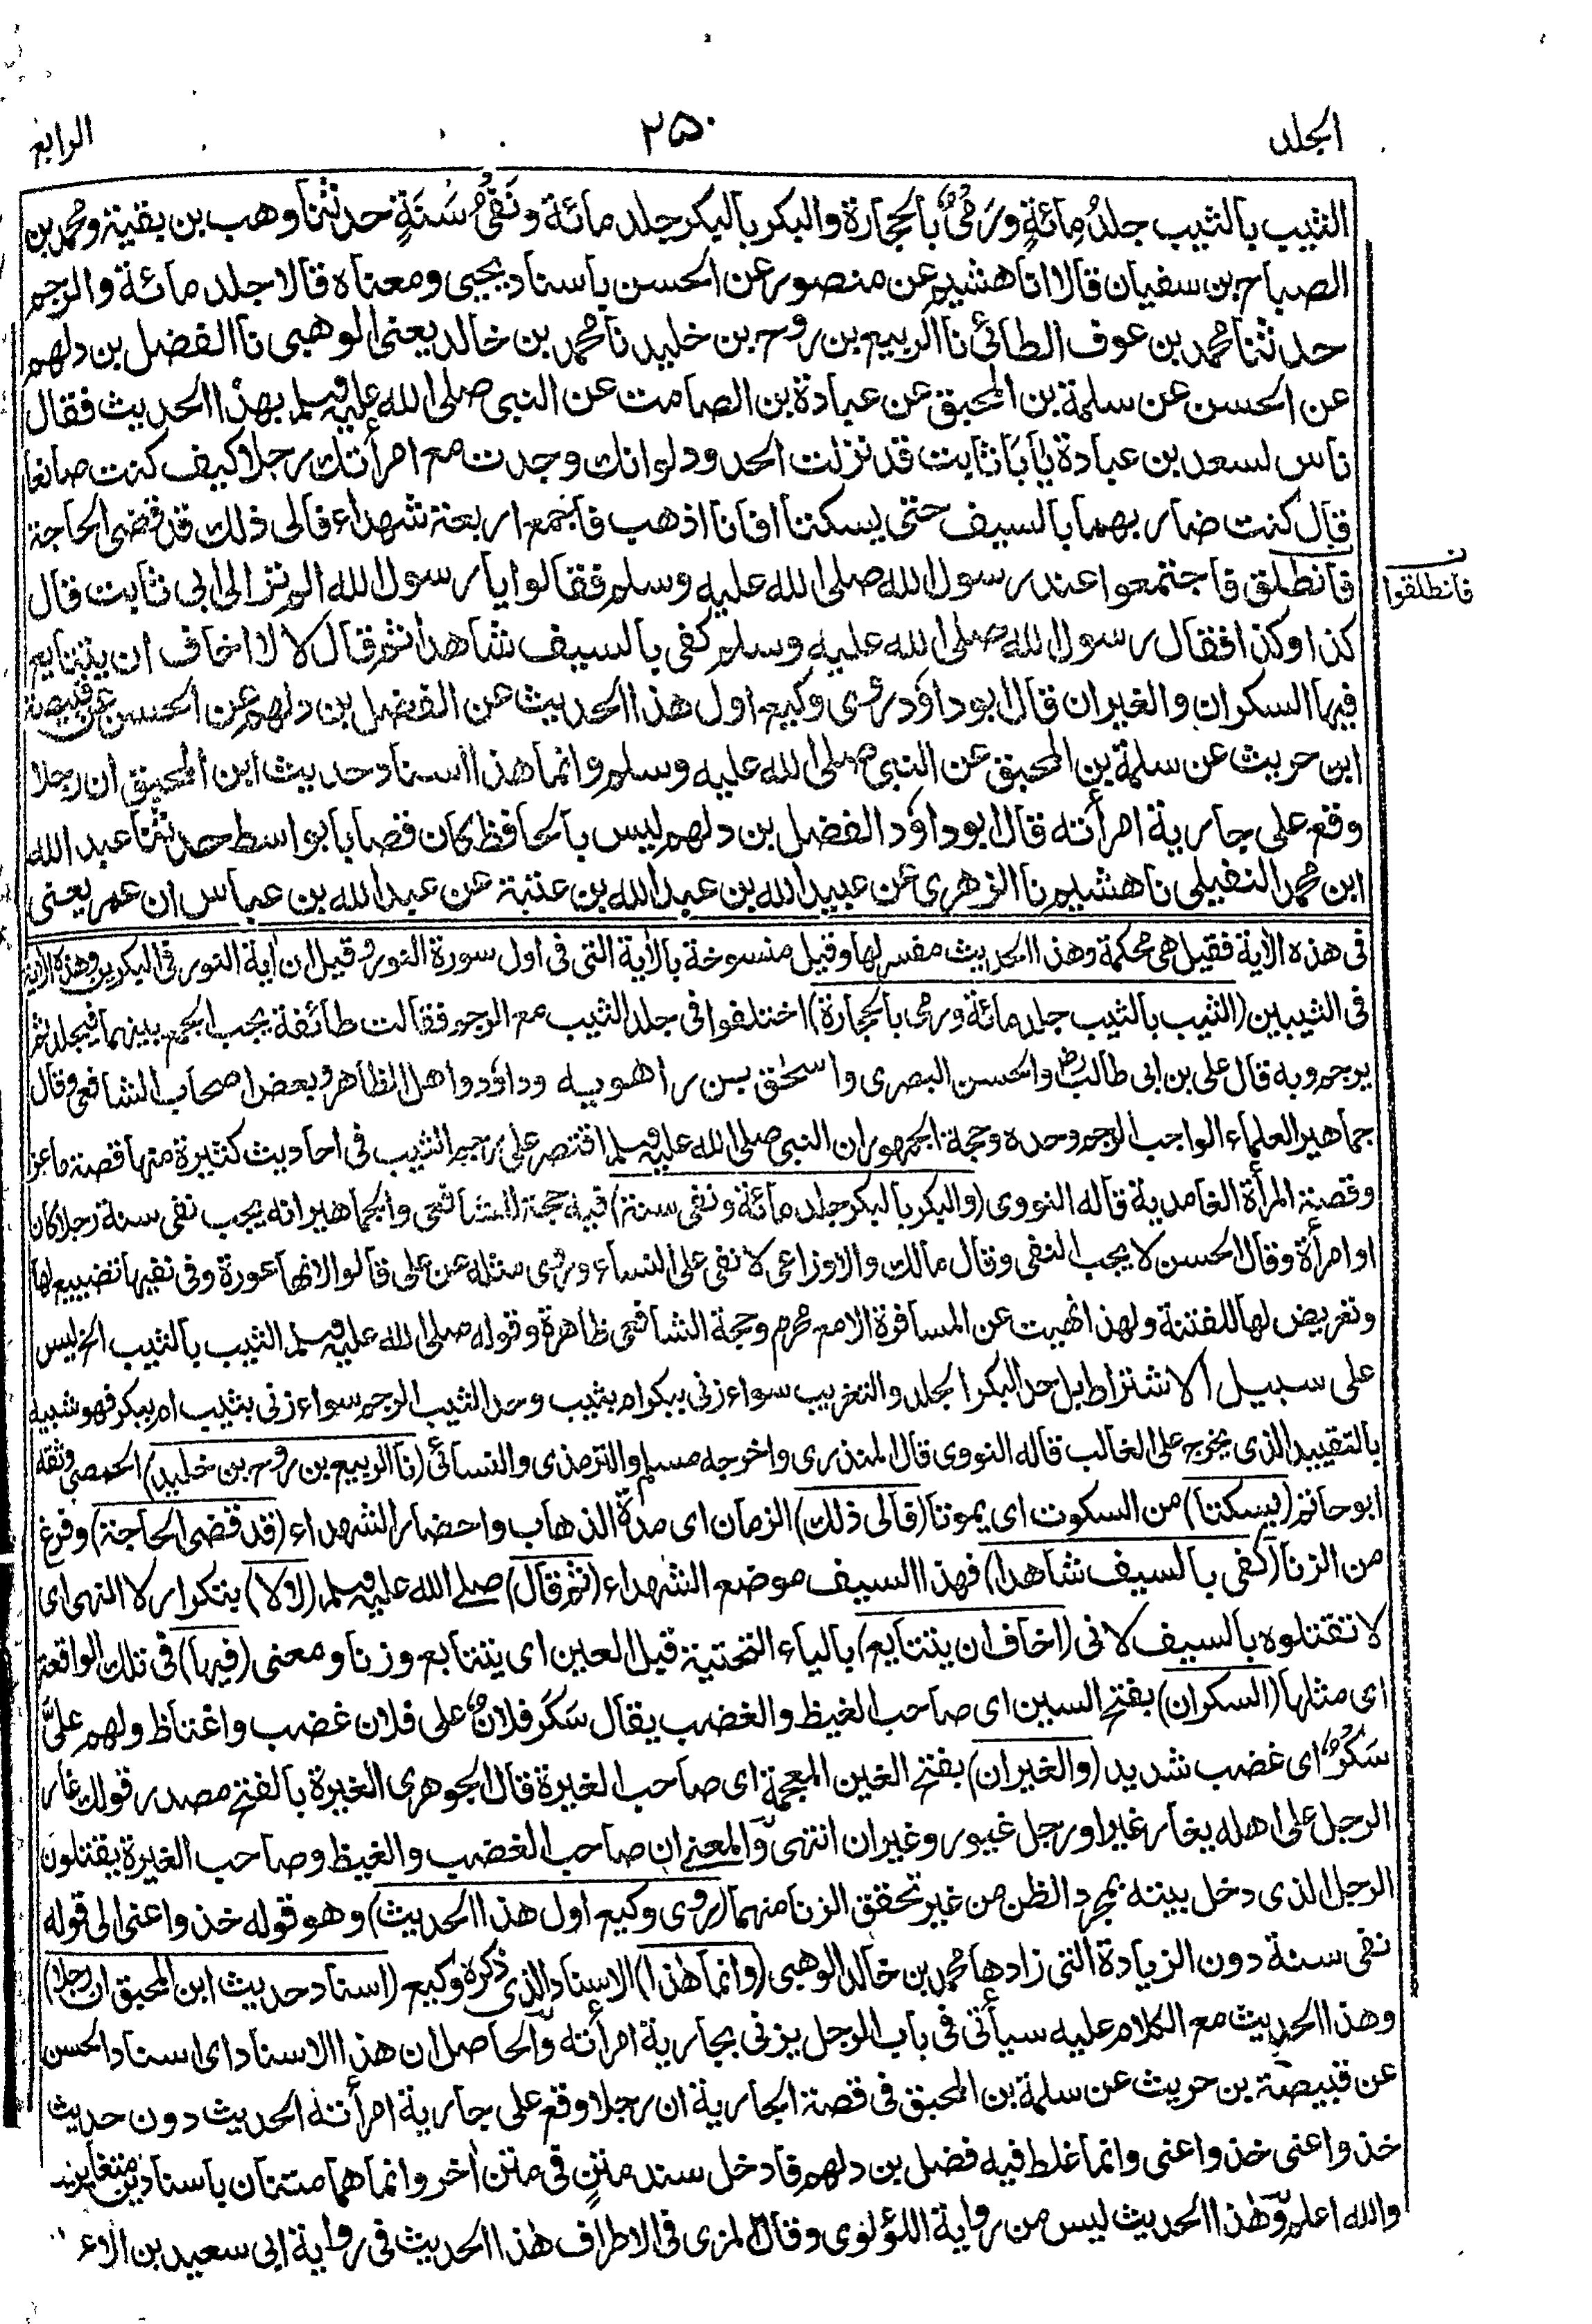 الجلد
٢٥٠
الرابع
الثيب بالثيب جلدُ مِائةٍ ورَمْىٌ بالحجارة والبكر بالبكر جلد مائة ونَفْىُ سَنَةٍ حدثنا وهب بن بقية ومحمد بن
الصباح بن سفيان قالا انا هشيم عن منصور عن الحسن باسناد يحيى ومعناه قالا جلد مائة والرجم
حدثنا محمد بن عوف الطائى نا الربيع بن روح بن خليد نا محمد بن خالد يعنى الوهبى نا الفضل بن دلهم
عن الحسن عن سلمة بن المحبق عن عبادة بن الصامت عن النبى صلى الله عليه وسلم بهذا الحديث فقال
ناس لسعد بن عبادة يا أبا ثابت قد نزلت الحدود لوانك وجدت مع امرأتك رجلا كيف كنت صانعا
قال كنت ضاربهما بالسيف حتى يسكتا افانا اذهب فاجمع اربعة شهداء فالى ذلك قد قضى الحاجة
فانطلق فاجتمعوا عند رسول الله صلى الله عليه وسلم فقالوا يا رسول الله الم تر الى ابى ثابت قال
ن فانطلقوا
كذا وكذا فقال رسول الله صلى الله عليه وسلم كفى بالسيف شاهدا ثم قال لا لا اخاف ان يتتايع
فيها السكران والغيران قال ابو داؤد روى وكيع اول هذا الحديث عن الفضل بن دلهم عن الحسن عن قبيصة
ابن حريث عن سلمة بن المحبق عن النبى صلى الله عليه وسلم وانما هذا اسناد حديث ابن المحبق ان رجلا
وقع على جارية امرأته قال ابو داؤد الفضل بن دلهم ليس بالحافظ كان قصابا بواسط حدثنا عبد الله
ابن محمد النفيلى نا هشيم نا الزهرى عن عبيد الله بن عبد الله بن عتبة عن عبد الله بن عباس ان عمر يعنى
فى هذه الاٰية فقيل هى محكمة وهذا الحديث مفسر لها وقيل منسوخة بالاٰية التى فى اول سورة النور وقيل ان اٰية النور فى البكرين وهذه الاٰية
فى الثيبين (الثيب بالثيب جلد مائة ورمى بالحجارة) اختلفوا فى جلد الثيب مع الرجم فقالت طائفة يجب الجمع بينهما فيجلد ثم
يرجم وبه قال على بن ابى طالب رض والحسن البصرى واسحٰق بن راهويه وداؤد واهل الظاهر وبعض اصحاب الشافعى وقال
جماهير العلماء الواجب الرجم وحده وحجة الجمهور ان النبى صلى الله عليه وسلم اقتصر على رجم الثيب فى احاديث كثيرة منها قصة ماعز
وقصة المرأة الغامدية قاله النووى (والبكر بالبكر جلد مائة ونفى سنة) فيه حجة للشافعى والجماهير انه يجب نفى سنة رجلا كان
او امرأة وقال الحسن لا يجب النفى وقال مالك والاوزاعى لا نفى على النساء وروى مثله عن على قالوا لانها عورة وفى نفيها تضييع لها
وتعريض لها للفتنة ولهذا نهيت عن المسافرة الا مع محرم وحجة الشافعى ظاهرة وقوله صلى الله عليه وسلم الثيب بالثيب الخ ليس
على سبيل الاشتراط بل حد البكر الجلد والتغريب سواء زنى ببكر ام بثيب وحد الثيب الرجم سواء زنى بثيب ام ببكر فهو شبيه
بالتقييد الذى يخرج على الغالب قاله النووى قال المنذرى واخرجه مسلم والترمذى والنسائى (نا الربيع بن روح بن خليد) الحمصى وثقه
ابو حاتم (يسكتا) من السكوت اى يموتا (فالى ذلك) الزمان اى مدة الذهاب واحضار الشهداء (قد قضى الحاجة) وفرغ
من الزنا (كفى بالسيف شاهدا) فهذا السيف موضع الشهداء (ثم قال) صلى الله عليه وسلم (لا لا) بتكرار لا النهى اى
لا تقتلوه بالسيف لانى (اخاف ان يتتايع) بالياء التحتية قبل العين اى يتتابع وزنا ومعنى (فيها) فى تلك الواقعة
اى مثلها (السكران) بفتح السين اى صاحب الغيظ والغضب يقال سَكَر فلانٌ على فلان غضب واغتاظ ولهم علىَّ
سَكَرٌ اى غضب شديد (والغيران) بفتح الغين المعجمة اى صاحب الغيرة قال الجوهرى الغيرة بالفتح مصدر قولك غار
الرجل على اهله يغار غيرا ورجل غيور وغيران انتهى والمعنے ان صاحب الغضب والغيظ وصاحب الغيرة يقتلون
الرجل الذى دخل بيته بمجرد الظن من غير تحقق الزنا منهما (روى وكيع اول هذا الحديث) وهو قوله خذوا عنى الى قوله
نفى سنة دون الزيادة التى زادها محمد بن خالد الوهبى (وانما هٰذا) الاسناد الذى ذكره وكيع (اسناد حديث ابن المحبق ان رجلا)
وهذا الحديث مع الكلام عليه سيأتى فى باب الرجل يزنى بجارية امرأته والحاصل ان هذا الاسناد اى اسناد الحسن
عن قبيصة بن حريث عن سلمة بن المحبق فى قصة الجارية ان رجلا وقع على جارية امرأته الحديث دون حديث
خذوا عنى خذوا عنى وانما غلط فيه فضل بن دلهم فادخل سند متنٍ فى متن اٰخر وانما هما متنان باسنادين متغايرين
والله اعلم وهٰذا الحديث ليس من رواية اللؤلؤى وقال المزى فى الاطراف هٰذا الحديث فى رواية ابى سعيد بن الاع